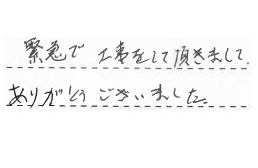 緊急で工事をして頂きまして、
ありがとうございました。